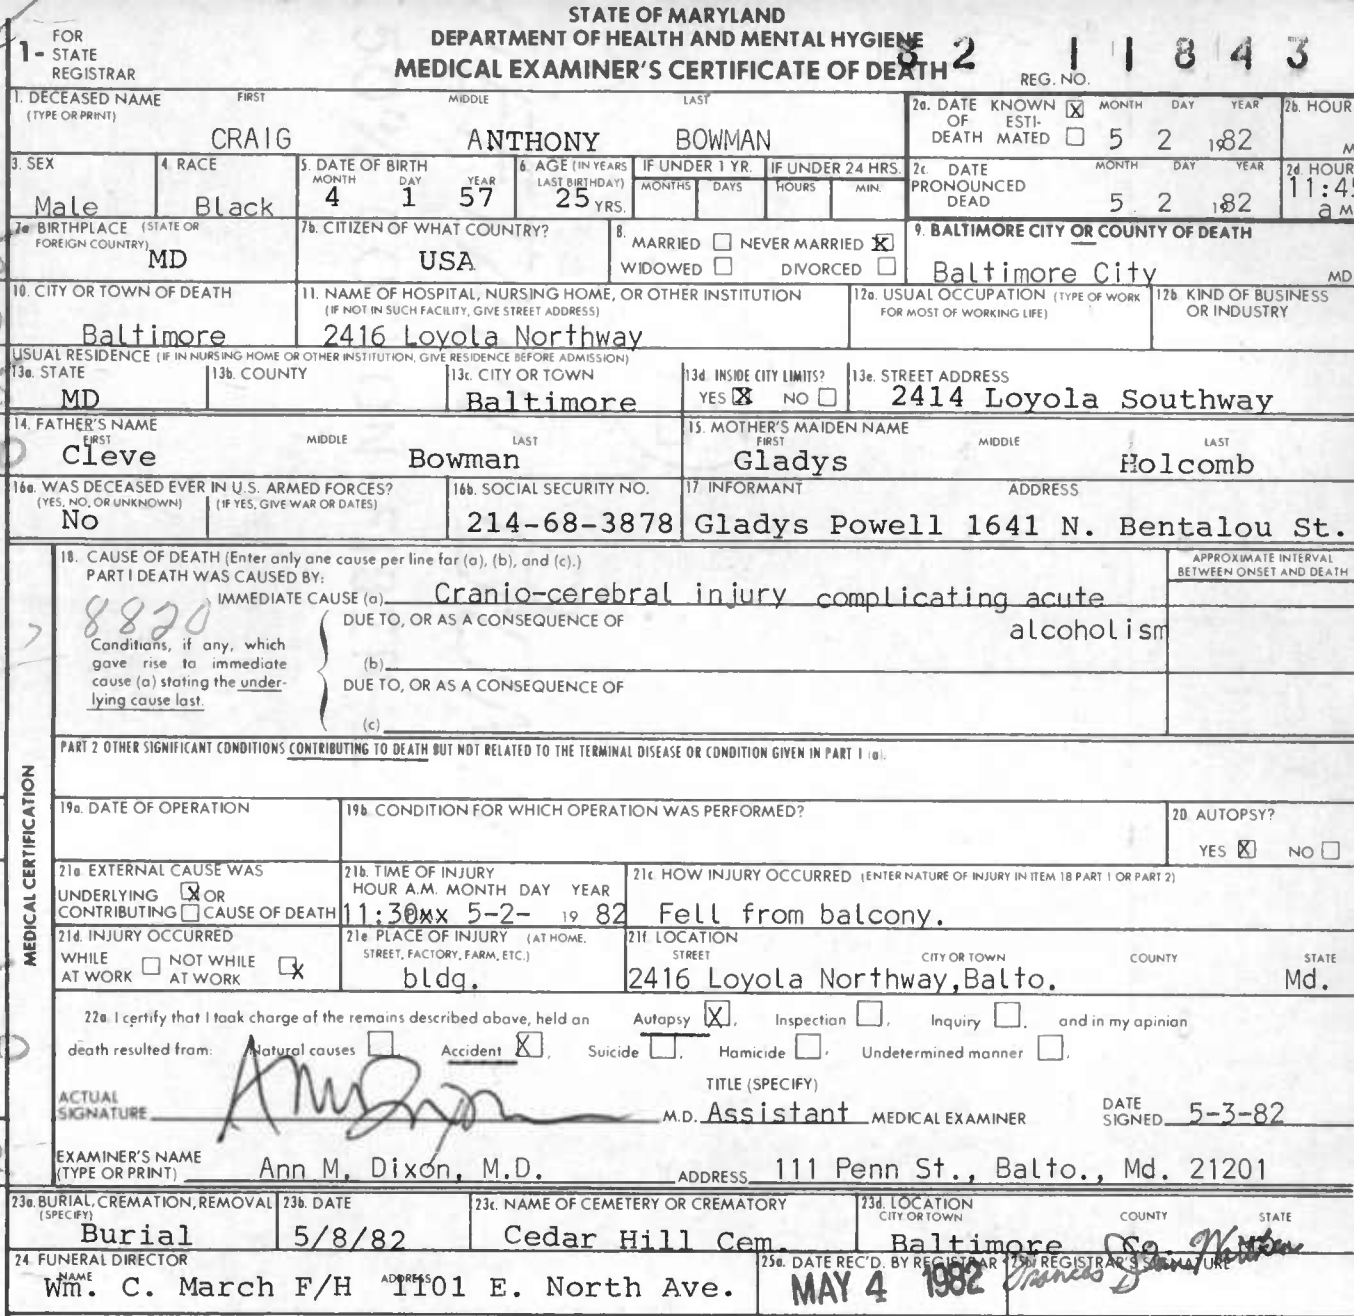 STATE OF MARYLAND
DEPARTMENT OF HEALTH AND MENTAL HYGIENE
MEDICAL EXAMINER'S CERTIFICATE OF DEATH
1- FOR STATE REGISTRAR
REG. NO. 82 11843
1. DECEASED NAME (TYPE OR PRINT) FIRST MIDDLE LAST
CRAIG ANTHONY BOWMAN
2a. DATE OF DEATH KNOWN X ESTIMATED MONTH DAY YEAR
5 2 1982
2b. HOUR
M
3. SEX
Male
4. RACE
Black
5. DATE OF BIRTH MONTH DAY YEAR
4 1 57
6. AGE (IN YEARS LAST BIRTHDAY)
25 YRS.
IF UNDER 1 YR. MONTHS DAYS
IF UNDER 24 HRS. HOURS MIN.
2c. DATE PRONOUNCED DEAD MONTH DAY YEAR
5 2 1982
2d. HOUR
11:45
a M
7a BIRTHPLACE (STATE OR FOREIGN COUNTRY)
MD
7b. CITIZEN OF WHAT COUNTRY?
USA
8. MARRIED NEVER MARRIED X
WIDOWED DIVORCED
9. BALTIMORE CITY OR COUNTY OF DEATH
Baltimore City MD
10. CITY OR TOWN OF DEATH
Baltimore
11. NAME OF HOSPITAL, NURSING HOME, OR OTHER INSTITUTION
(IF NOT IN SUCH FACILITY, GIVE STREET ADDRESS)
2416 Loyola Northway
12a. USUAL OCCUPATION (TYPE OF WORK FOR MOST OF WORKING LIFE)
12b. KIND OF BUSINESS OR INDUSTRY
USUAL RESIDENCE (IF IN NURSING HOME OR OTHER INSTITUTION, GIVE RESIDENCE BEFORE ADMISSION)
13a. STATE
MD
13b. COUNTY
13c. CITY OR TOWN
Baltimore
13d. INSIDE CITY LIMITS?
YES X NO
13e. STREET ADDRESS
2414 Loyola Southway
14. FATHER'S NAME FIRST MIDDLE LAST
Cleve Bowman
15. MOTHER'S MAIDEN NAME FIRST MIDDLE LAST
Gladys Holcomb
16a. WAS DECEASED EVER IN U.S. ARMED FORCES?
(YES, NO, OR UNKNOWN) (IF YES, GIVE WAR OR DATES)
No
16b. SOCIAL SECURITY NO.
214-68-3878
17. INFORMANT ADDRESS
Gladys Powell 1641 N. Bentalou St.
MEDICAL CERTIFICATION
18. CAUSE OF DEATH (Enter only one cause per line for (a), (b), and (c).)
APPROXIMATE INTERVAL BETWEEN ONSET AND DEATH
PART I DEATH WAS CAUSED BY:
IMMEDIATE CAUSE (a) Cranio-cerebral injury complicating acute
alcoholism
8820
DUE TO, OR AS A CONSEQUENCE OF
Conditions, if any, which gave rise to immediate cause (a) stating the underlying cause last.
(b)
DUE TO, OR AS A CONSEQUENCE OF
(c)
PART 2 OTHER SIGNIFICANT CONDITIONS CONTRIBUTING TO DEATH BUT NOT RELATED TO THE TERMINAL DISEASE OR CONDITION GIVEN IN PART 1 (a).
19a. DATE OF OPERATION
19b. CONDITION FOR WHICH OPERATION WAS PERFORMED?
20. AUTOPSY?
YES X NO
21a. EXTERNAL CAUSE WAS
UNDERLYING X OR
CONTRIBUTING CAUSE OF DEATH
21b. TIME OF INJURY
HOUR A.M. MONTH DAY YEAR
11:30xx 5-2- 19 82
21c. HOW INJURY OCCURRED (ENTER NATURE OF INJURY IN ITEM 18 PART 1 OR PART 2)
Fell from balcony.
21d. INJURY OCCURRED
WHILE AT WORK NOT WHILE AT WORK X
21e. PLACE OF INJURY (AT HOME, STREET, FACTORY, FARM, ETC.)
bldg.
21f. LOCATION
STREET CITY OR TOWN COUNTY STATE
2416 Loyola Northway, Balto. Md.
22a I certify that I took charge of the remains described above, held an Autopsy X, Inspection, Inquiry, and in my opinion
death resulted from: Natural causes, Accident X, Suicide, Homicide, Undetermined manner.
ACTUAL SIGNATURE
M.D.
TITLE (SPECIFY)
Assistant MEDICAL EXAMINER
DATE SIGNED 5-3-82
EXAMINER'S NAME (TYPE OR PRINT) Ann M. Dixon, M.D.
ADDRESS 111 Penn St., Balto., Md. 21201
23a. BURIAL, CREMATION, REMOVAL (SPECIFY)
Burial
23b. DATE
5/8/82
23c. NAME OF CEMETERY OR CREMATORY
Cedar Hill Cem.
23d. LOCATION CITY OR TOWN COUNTY STATE
Baltimore Co.
24 FUNERAL DIRECTOR NAME ADDRESS
Wm. C. March F/H 1101 E. North Ave.
25a. DATE REC'D. BY REGISTRAR
MAY 4 1982
25b. REGISTRAR'S SIGNATURE
Frances